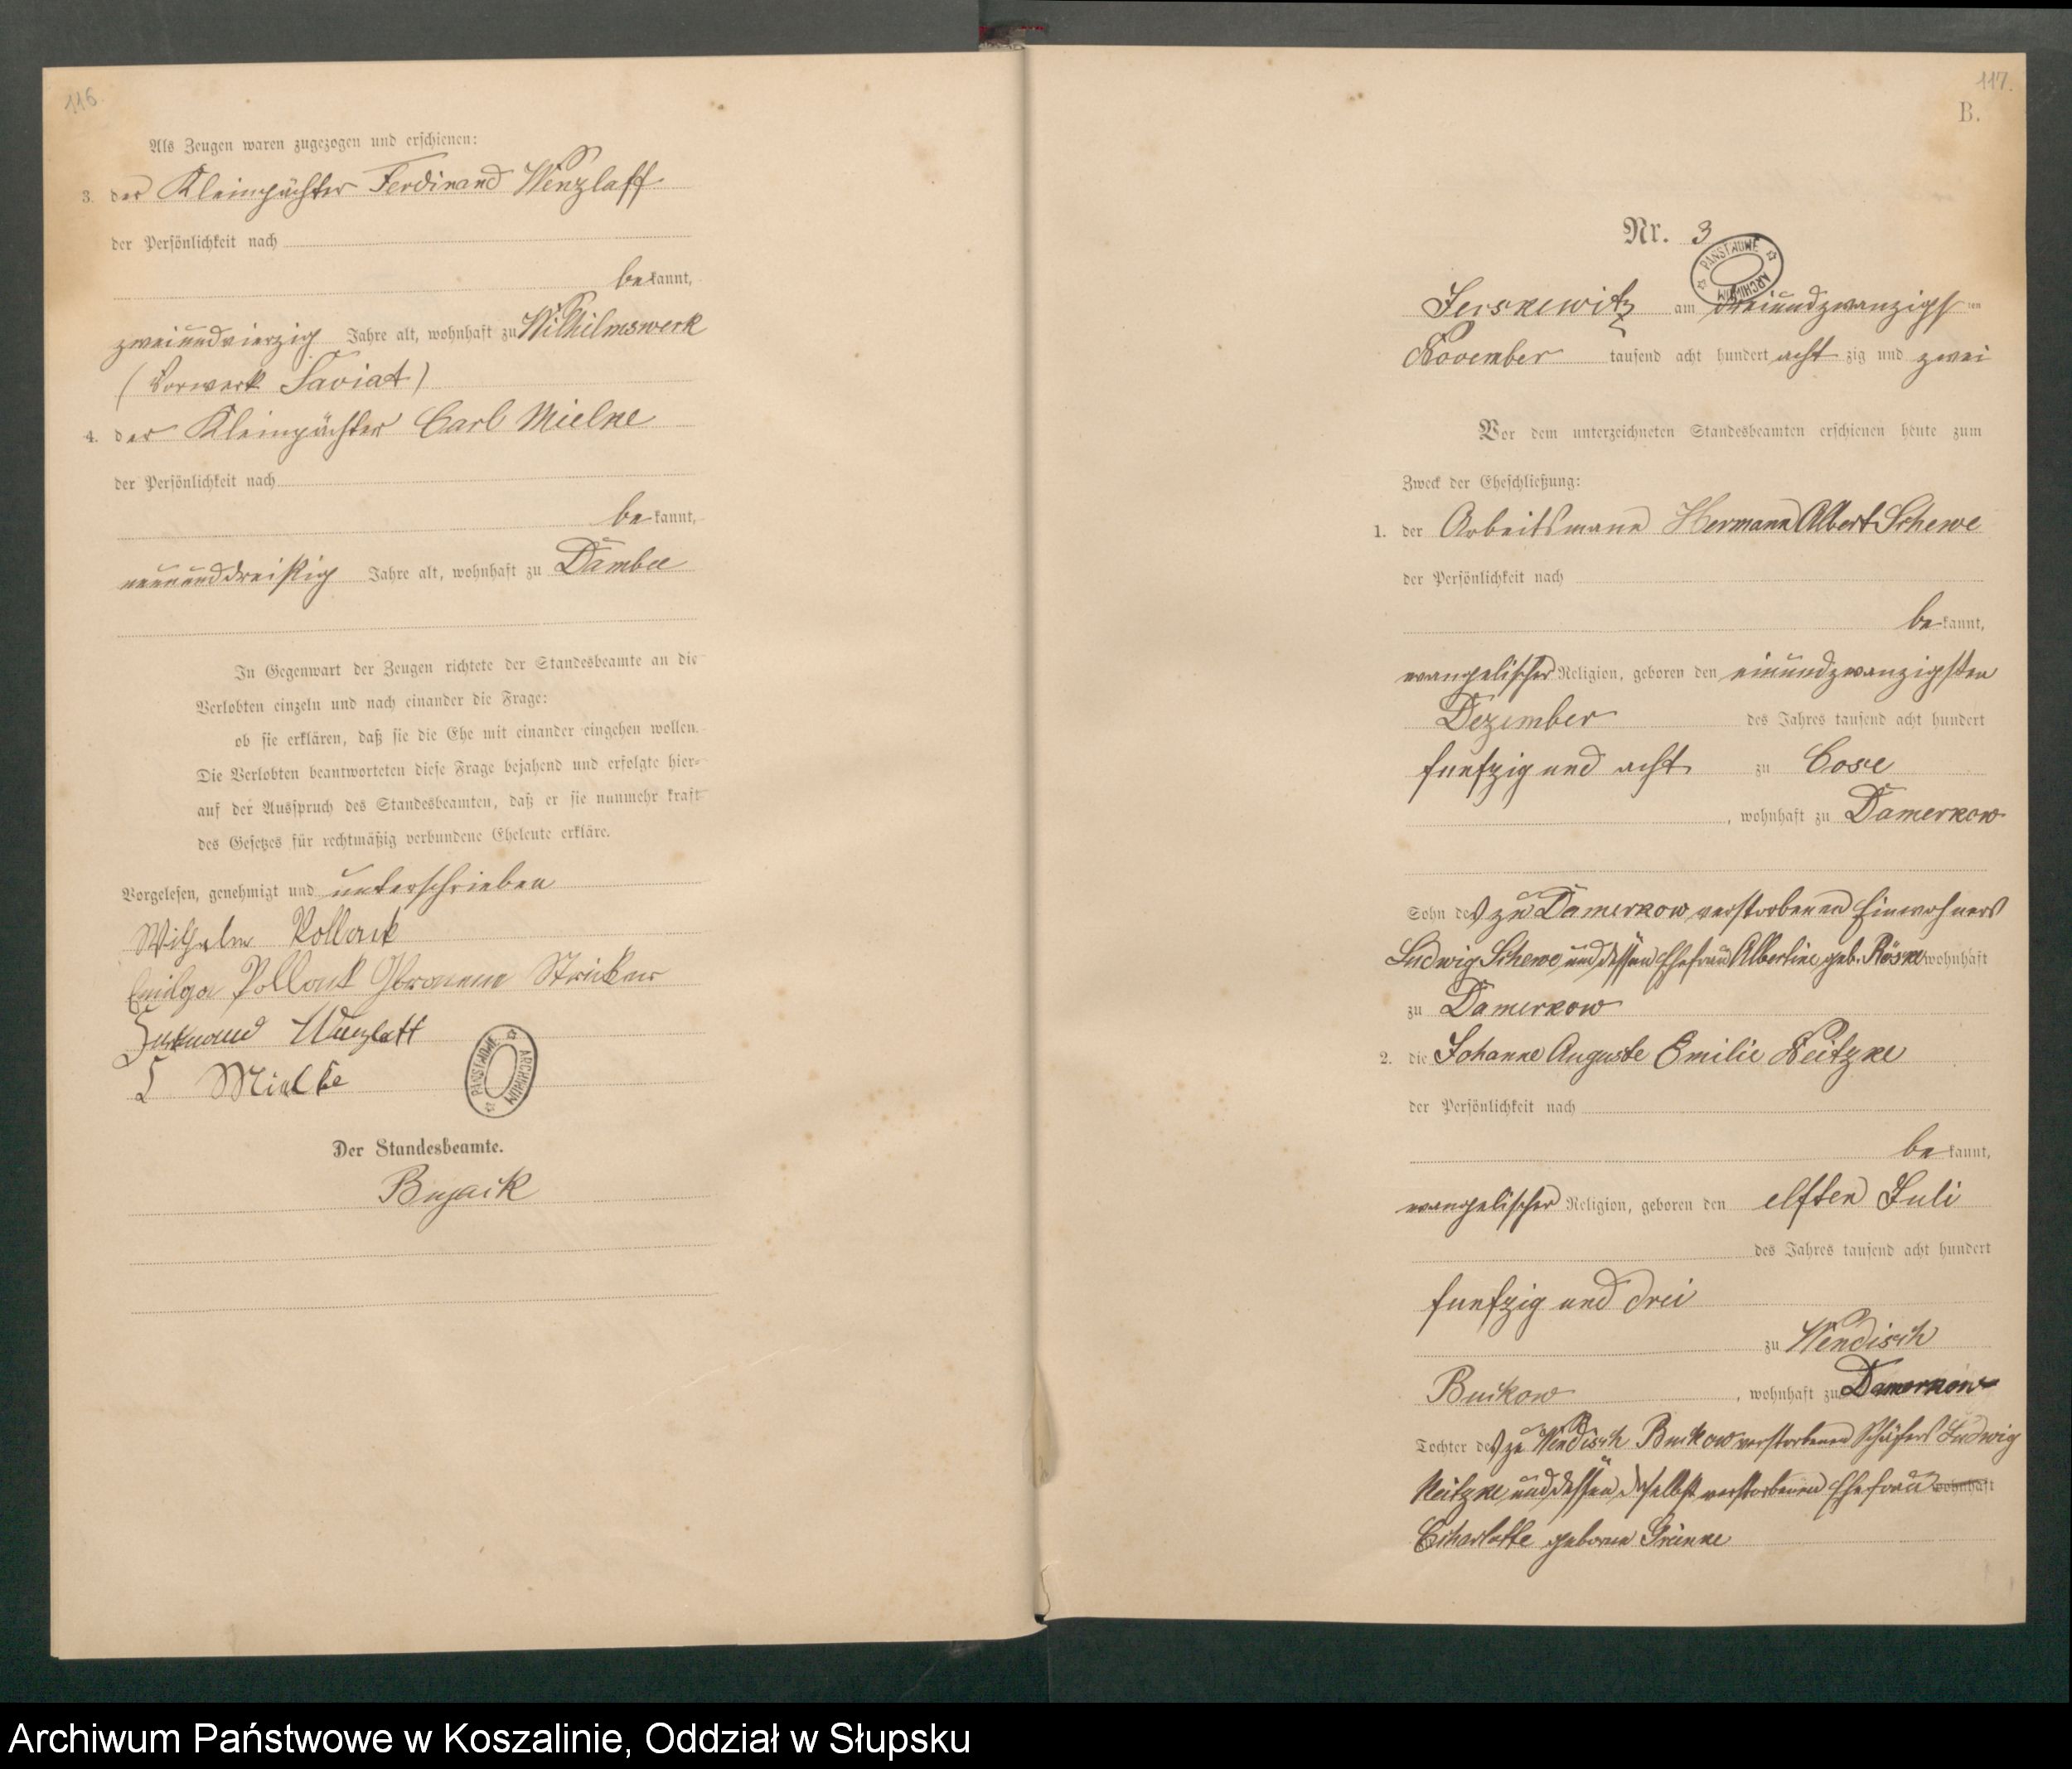 116.
Als Zeugen waren zugezogen und erschienen:
3. der Kleinpächter Ferdinand Wenzlaff
der Persönlichkeit nach
bekannt,
zweiundvierzig Jahre alt, wohnhaft zu Wilhelmswerk
(Vorwerk Saviat)
4. der Kleinpächter Carl Mielke
der Persönlichkeit nach
bekannt,
neununddreißig Jahre alt, wohnhaft zu Dambee
In Gegenwart der Zeugen richtete der Standesbeamte an die
Verlobten einzeln und nach einander die Frage:
ob sie erklären, daß sie die Ehe mit einander eingehen wollen.
Die Verlobten beantworteten diese Frage bejahend und erfolgte hier-
auf der Ausspruch des Standesbeamten, daß er sie nunmehr kraft
des Gesetzes für rechtmäßig verbundene Eheleute erkläre.
Vorgelesen, genehmigt und unterschrieben
Wilhelm Pollack
Pollack
Wenzlaff
Mielke
PAŃSTWOWE ARCHIWUM
Der Standesbeamte.
Bujack
117.
B.
Nr. 3
PAŃSTWOWE ARCHIWUM
Jerskewitz am dreiundzwanzigsten
November tausend acht hundert achtzig und zwei
Vor dem unterzeichneten Standesbeamten erschienen heute zum
Zweck der Eheschließung:
1. der Arbeitsmann Hermann Albert Schewe
der Persönlichkeit nach
bekannt,
evangelischer Religion, geboren den einundzwanzigsten
Dezember des Jahres tausend acht hundert
funfzig und acht zu Cose
, wohnhaft zu Damerkow
Sohn des zu Damerkow verstorbenen Einwohners
Ludwig Schewe und dessen Ehefrau Albertine geb. Röske wohnhaft
zu Damerkow
2. die Johanne Auguste Emilie Neitzke
der Persönlichkeit nach
bekannt,
evangelischer Religion, geboren den elften Juli
des Jahres tausend acht hundert
funfzig und drei
zu Wendisch
Buckow , wohnhaft zu Damerkow
Tochter des zu Wendisch Buckow verstorbenen Schäfers Ludwig
Neitzke und dessen daselbst verstorbenen Ehefrau wohnhaft
Charlotte geborne
Archiwum Państwowe w Koszalinie, Oddział w Słupsku